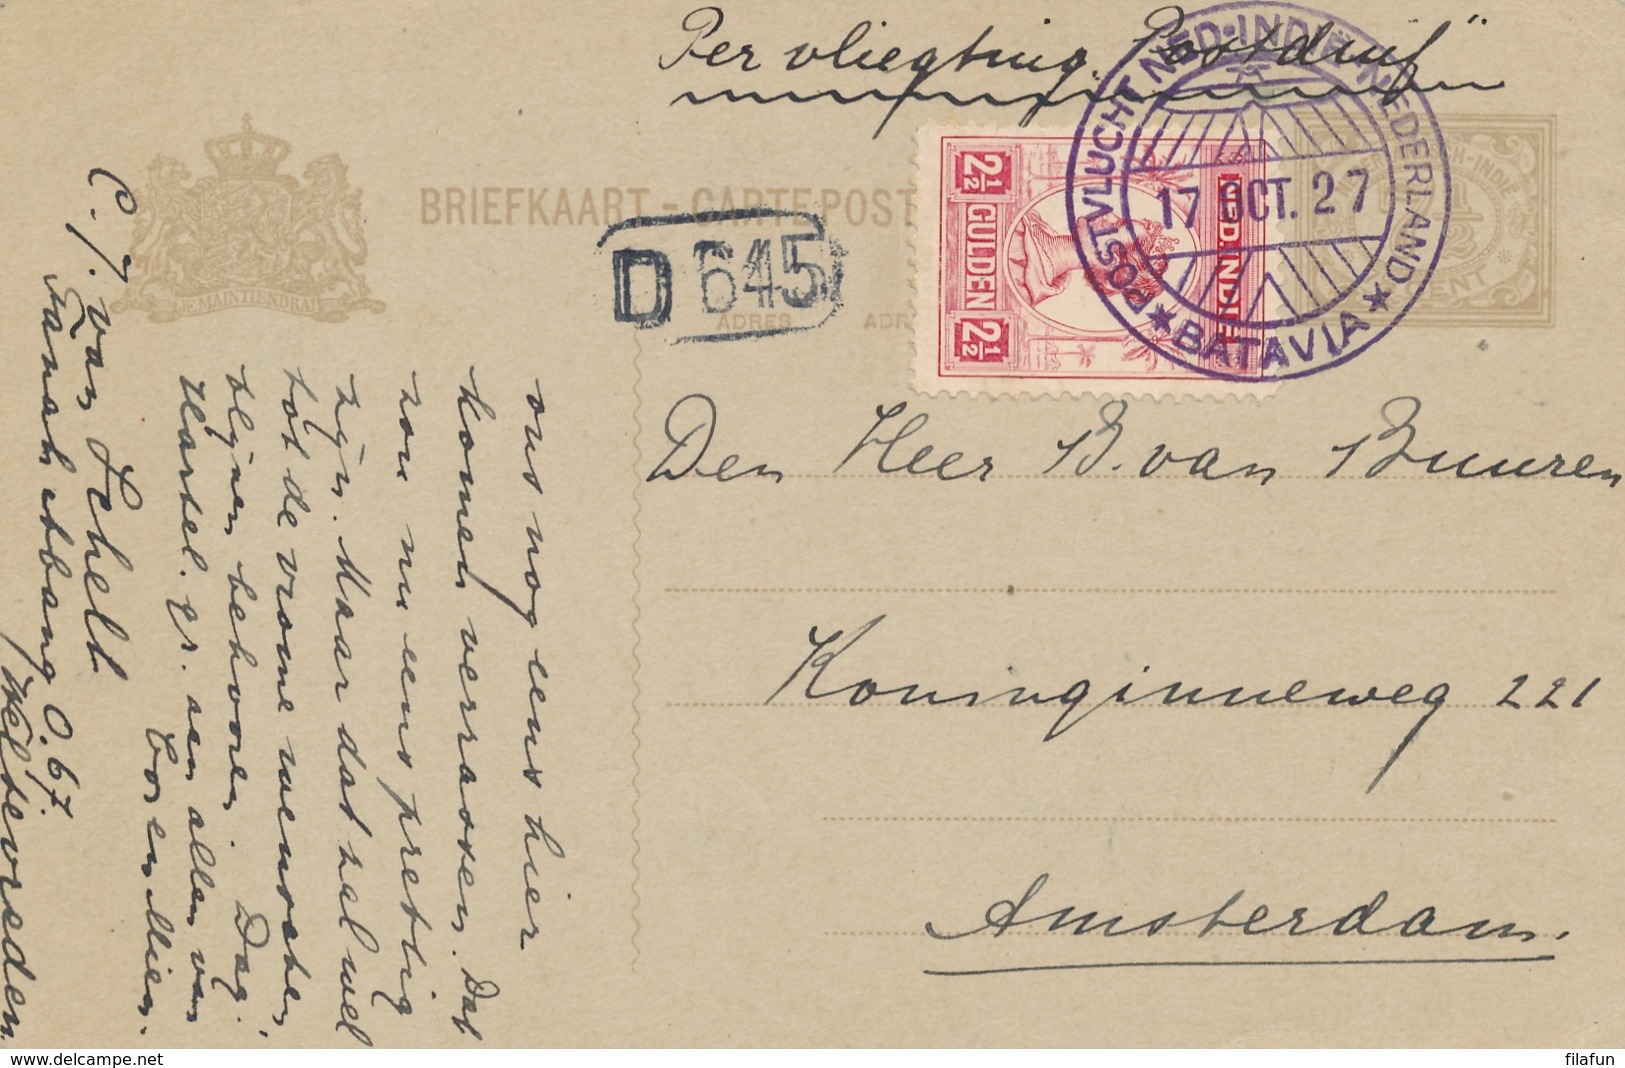 Per vliegtuig "Postduif"
BRIEFKAART - CARTE POST
JE MAINTIENDRAI
D 645
ADRES
2½ GULDEN 2½
NED. INDIË
POSTVLUCHT NED-INDIË-NEDERLAND
17 OCT. 27
★ BATAVIA ★
CENT
Den Heer B. van Buuren
Koninginneweg 221
Amsterdam.
ons nog eens hier
komen verrassen. Dat
zou nu eens prettig
zijn. Maar dat zal wel
tot de vrome wenschen
blijven behooren. Dag!
Hartel. gr. aan allen van
Cor en Mien.
C. J. van Schell
Tanah Abang O. 67.
Weltevreden.
www.delcampe.net
filafun